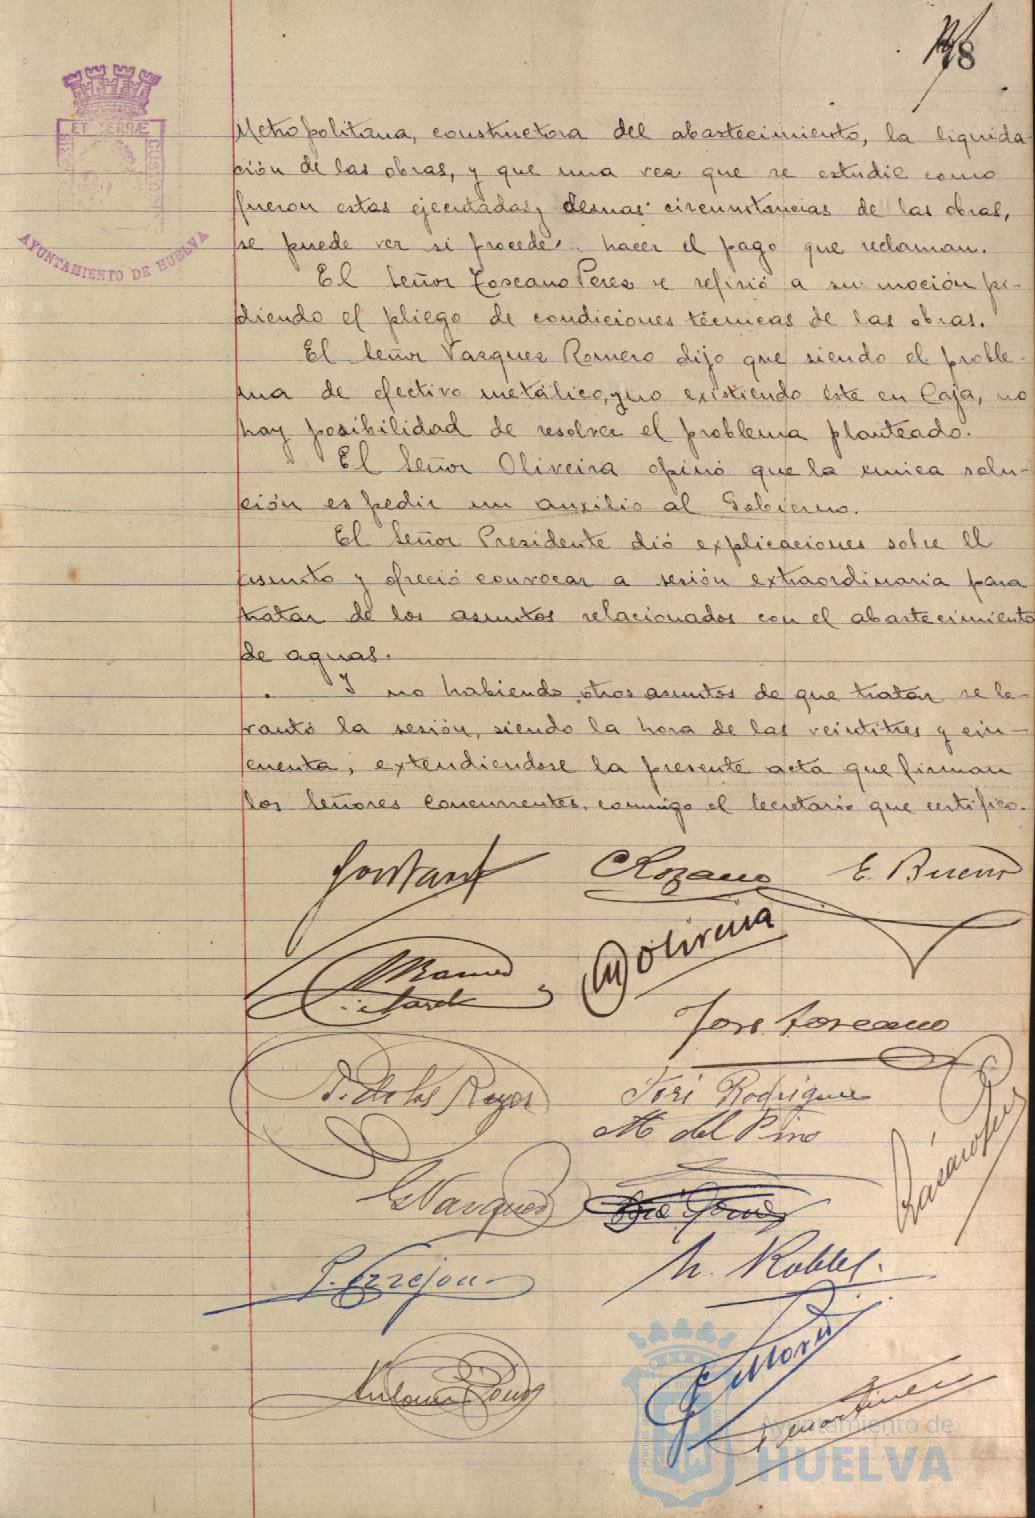 ET TERRÆ
AYUNTAMIENTO DE HUELVA
Metropolitana, constructora del abastecimiento, la liquida-
ción de las obras, y que una vez que se estudie como
fueron estas ejecutadas y demas circunstancias de las obras,
se puede ver si procede hacer el pago que reclaman.
El Señor Toscano Perez se refirió a su moción pi-
diendo el pliego de condiciones técnicas de las obras.
El Señor Vazquez Romero dijo que siendo el proble-
ma de efectivo metálico, y no existiendo éste en Caja, no
hay posibilidad de resolver el problema planteado.
El Señor Oliveira opinó que la unica solu-
ción es pedir un auxilio al Gobierno.
El Señor Presidente dió explicaciones sobre el
asunto y ofreció convocar a sesión extraordinaria para
tratar de los asuntos relacionados con el abastecimiento
de aguas.
Y no habiendo otros asuntos de que tratar se le-
vantó la sesión, siendo la hora de las veintitres y cin-
cuenta, extendiendose la presente acta que firman
los Señores Concurrentes, conmigo el Secretario que certifico.
Lozano E. Bueno
Oliveira
José Toscano
A. de los Reyes José Rodriguez
M del Pino
G Vazquez José Gomez
P. Cerrejon M. Robles.
Antonio Pousa
Martinez
Ayuntamiento de
HUELVA